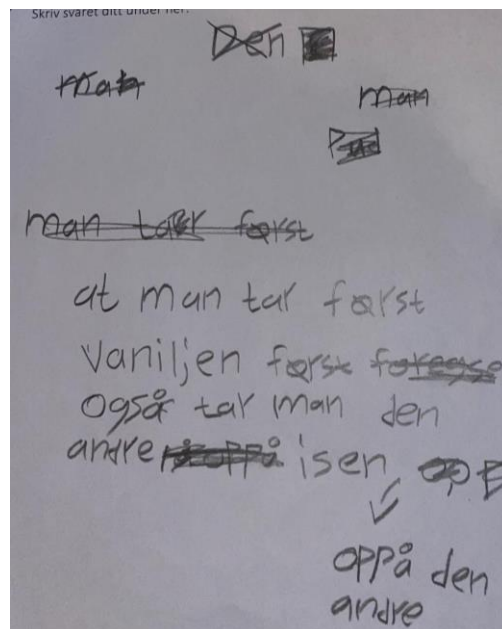 Skriv svaret ditt under her.
Den
man
man
man tar først
at man tar først
vaniljen først
også tar man den
andre isen
oppå den
andre